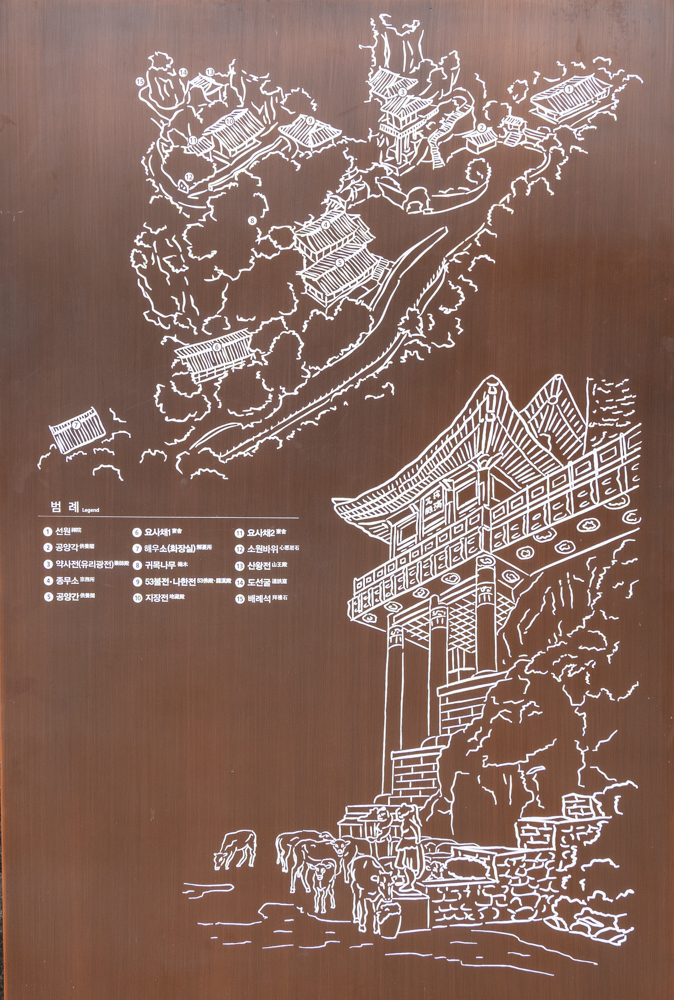 범 례 Legend
1 선원 禪院
2 공양각 供養閣
3 약사전(유리광전) 藥師殿
4 종무소 宗務所
5 공양간 供養間
6 요사채1 寮舍
7 해우소(화장실) 解憂所
8 귀목나무
9 53불전·나한전 53佛殿·羅漢殿
10 지장전 地藏殿
11 요사채2 寮舍
12 소원바위 心愿岩石
13 산왕전 山王殿
14 도선굴 道詵窟
15 배례석 拜禮石